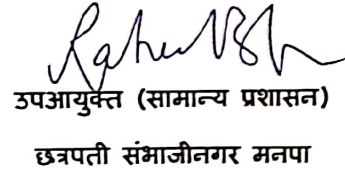 उपआयुक्त (सामान्य प्रशासन)
छत्रपती संभाजीनगर मनपा